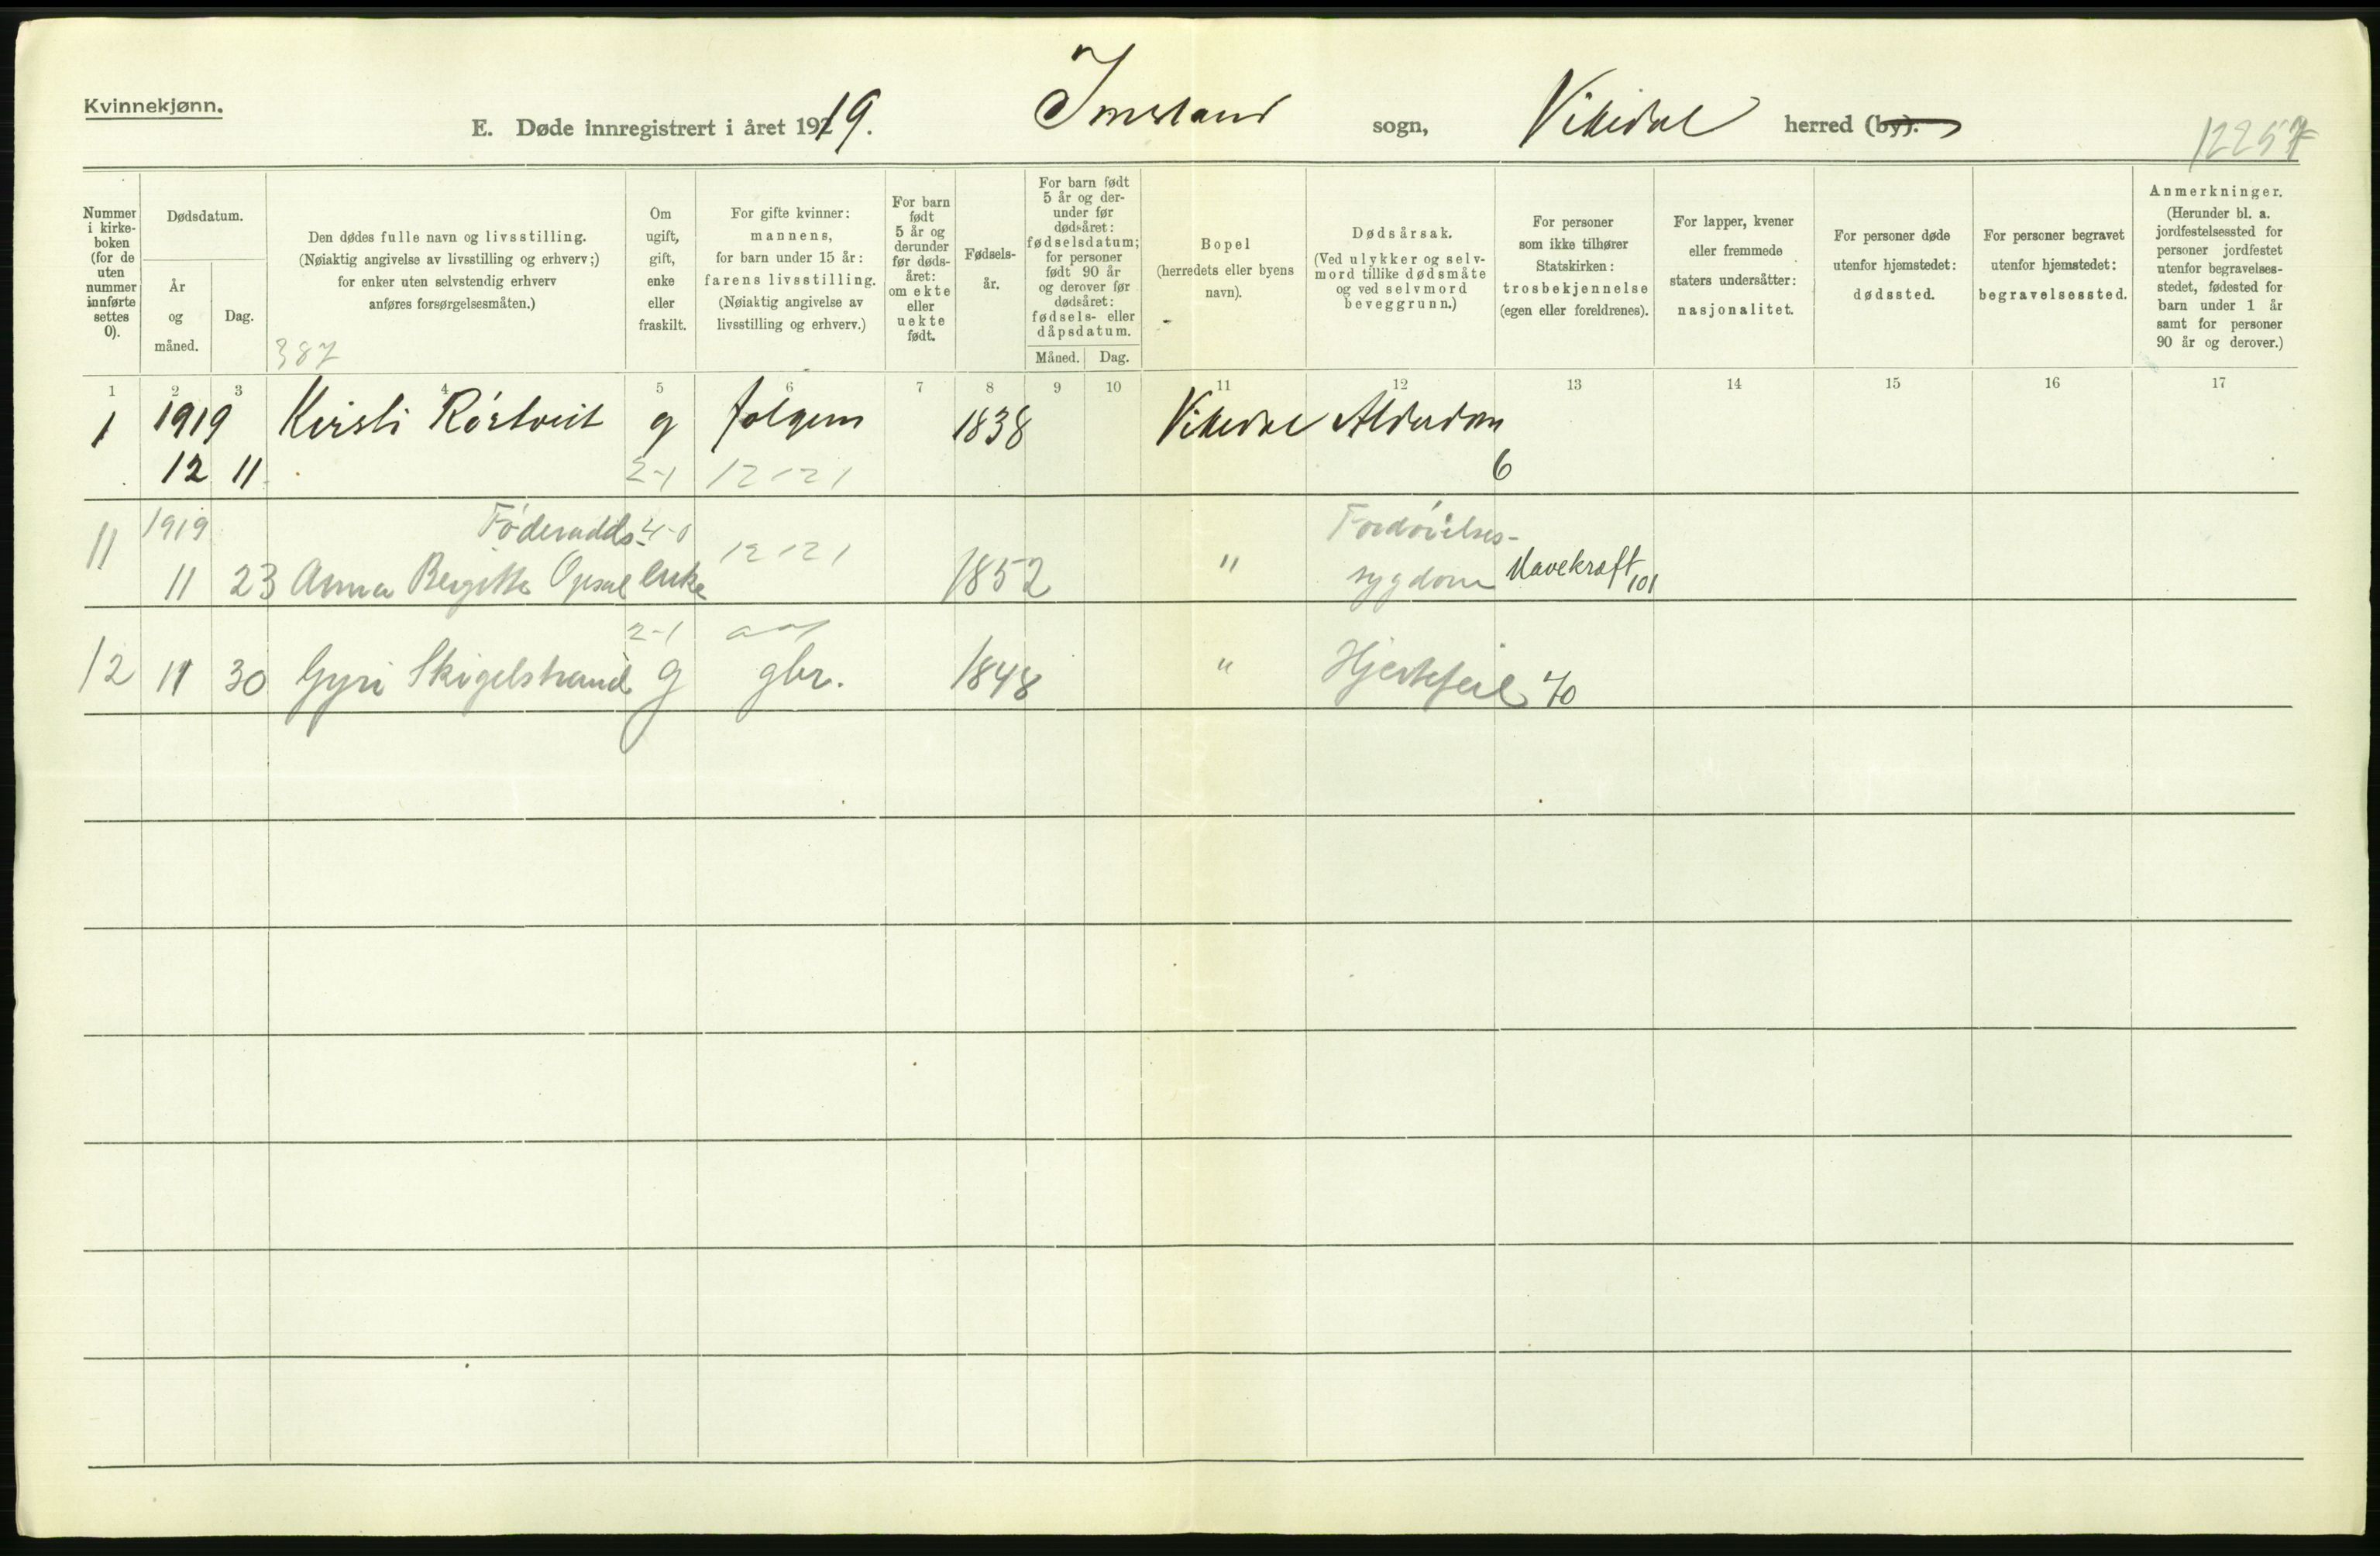 Kvinnekjønn.
E. Døde innregistrert i året 1919. Imsland sogn, Vikedal herred (by).
12257
Nummer i kirkeboken (for de uten nummer innførte settes 0).
Dødsdatum.
År og måned.
Dag.
Den dødes fulle navn og livsstilling.
(Nøiaktig angivelse av livsstilling og erhverv;)
for enker uten selvstendig erhverv
anføres forsørgelsesmåten.)
387
Om
ugift,
gift,
enke
eller
fraskilt.
For gifte kvinner:
mannens,
for barn under 15 år:
farens livsstilling.
(Nøiaktig angivelse av
livsstilling og erhverv.)
For barn
født
5 år og
derunder
før døds-
året:
om ekte
eller
uekte
født.
Fødsels-
år.
For barn født
5 år og der-
under før
dødsåret:
fødselsdatum;
for personer
født 90 år
og derover før
dødsåret:
fødsels- eller
dåpsdatum.
Måned. Dag.
Bopel
(herredets eller byens
navn).
Dødsårsak.
(Ved ulykker og selv-
mord tillike dødsmåte
og ved selvmord
beveggrunn.)
For personer
som ikke tilhører
Statskirken:
trosbekjennelse
(egen eller foreldrenes).
For lapper, kvener
eller fremmede
staters undersåtter:
nasjonalitet.
For personer døde
utenfor hjemstedet:
dødssted.
For personer begravet
utenfor hjemstedet:
begravelsessted.
Anmerkninger.
(Herunder bl. a.
jordfestelsessted for
personer jordfestet
utenfor begravelses-
stedet, fødested for
barn under 1 år
samt for personer
90 år og derover.)
1 2 3 4 5 6 7 8 9 10 11 12 13 14 15 16 17
1 1919 Kirsti Rörtveit g folgem 1838 Vikedal Alderdom
12 11 2-1 12 121 6
11 1919 Föderadds- 4-0 12 121 Fordöielses-
11 23 Anna Bergitte Opsal enke 1852 " sygdom Mavekraft 101
2-1
12 11 30 Gyri Skigelstrand g gbr. 1848 " Hjertefeil 70